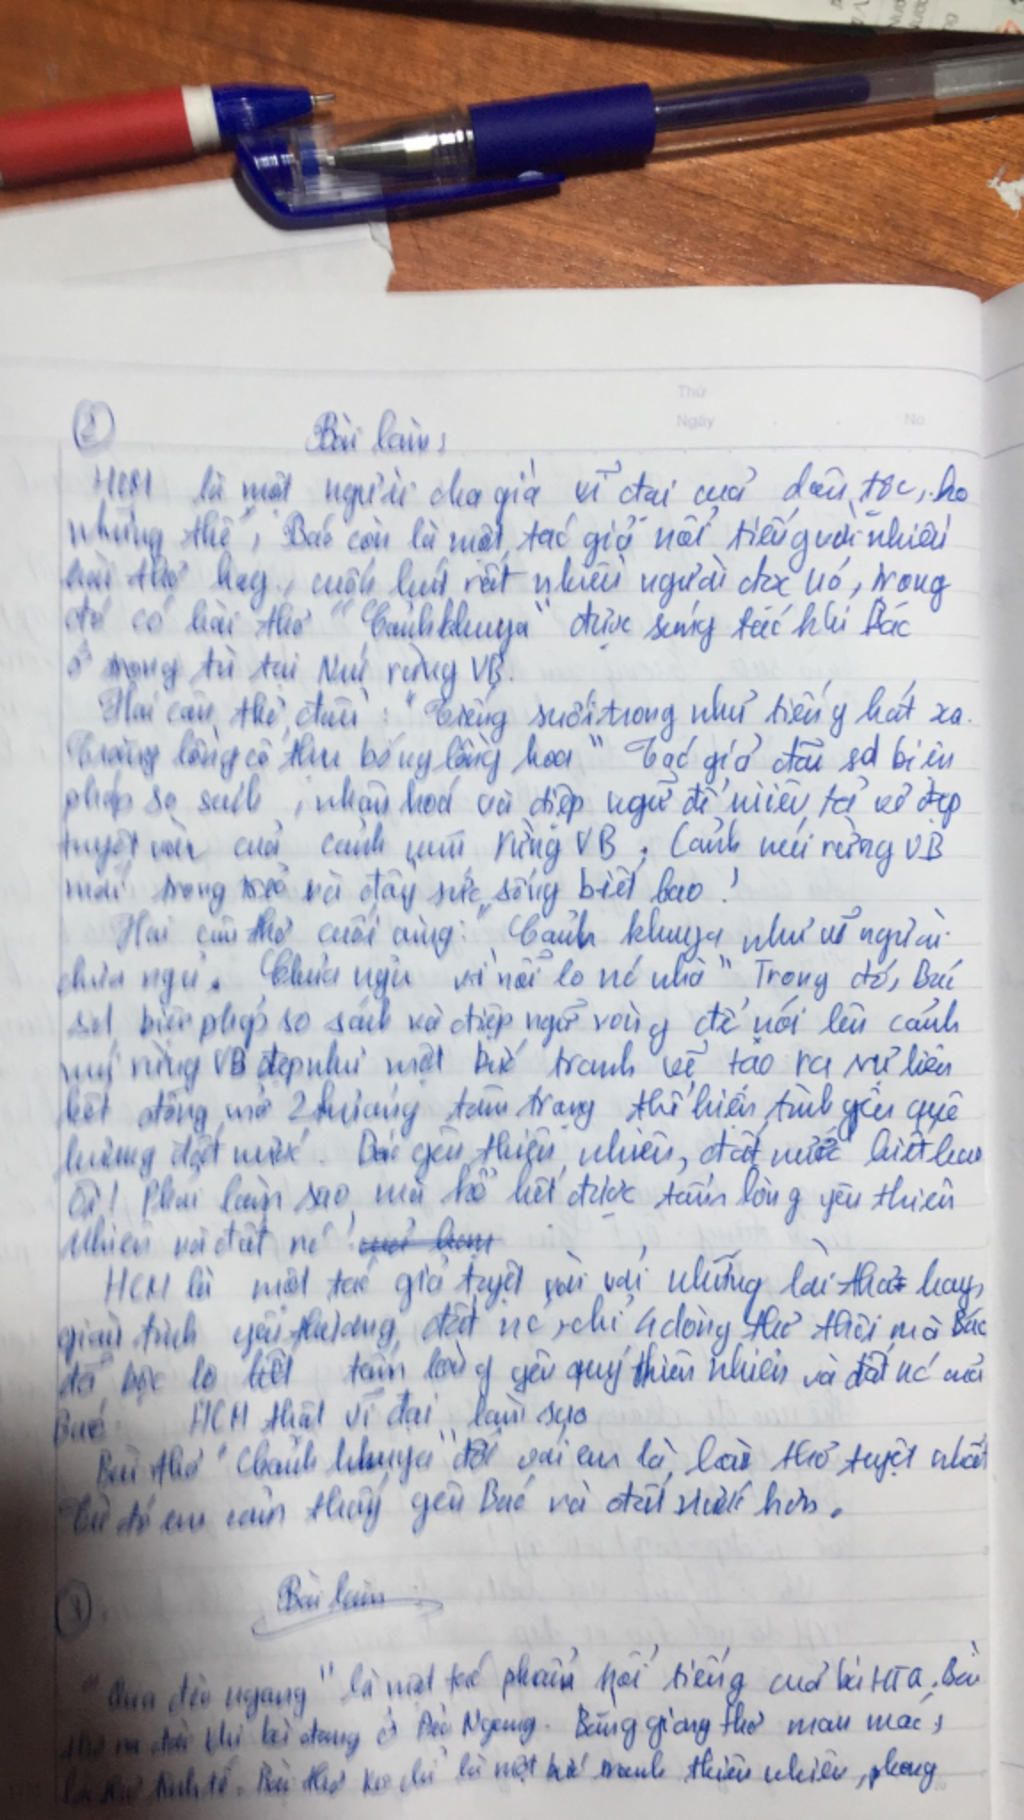 Thứ
Ngày No
② Bài làm:
HCM là một người cha già vĩ đại của dân tộc, ko
những thế, Bác còn là một tác giả nổi tiếng với nhiều
bài thơ hay, cuốn hút rất nhiều người đọc nó, trong
đó có bài thơ "Cảnh khuya" được sáng tác khi Bác
ở trong tù tại Núi rừng VB.
Hai câu thơ đầu: "Tiếng suối trong như tiếng hát xa.
Trăng lồng cổ thụ bóng lồng hoa" Tác giả đã sd biện
pháp so sánh, nhân hoá và điệp ngữ để miêu tả vẻ đẹp
tuyệt vời của cảnh núi rừng VB. Cảnh núi rừng VB
mới trong trẻo và đầy sức sống biết bao!
Hai câu thơ cuối cùng: "Cảnh khuya như vẽ người
chưa ngủ. Chưa ngủ vì nỗi lo nc nhà" Trong đó, Bác
sd biện pháp so sánh và điệp ngữ vòng để nói lên cảnh
núi rừng VB đẹp như một bức tranh vẽ tạo ra sự liên
kết đồng mở 2 hướng tâm trạng thể hiện tình yêu quê
hương đất nước. Bác yêu thiên nhiên, đất nước biết bao
Ôi! Phải làm sao mà kể hết được tấm lòng yêu thiên
nhiên và đất nc!
HCM là một tác giả tuyệt vời với những lời thơ hay,
giàu tình yêu thương đất nc, chỉ 4 dòng thơ thôi mà Bác
đã bộc lộ hết tấm lòng yêu quý thiên nhiên và đất nc của
Bác. HCM thật vĩ đại làm sao
Bài thơ "Cảnh khuya" đối với em là bài thơ tuyệt nhất
Từ đó em cảm thấy yêu Bác và đất nước hơn.
① Bài làm
"Qua đèo ngang" là một tác phẩm nổi tiếng của bà HTQ. Bài
thơ ra đời khi bà đang ở Đèo Ngang. Bằng giọng thơ man mác,
Bài thơ ko chỉ là một bức tranh thiên nhiên, phong